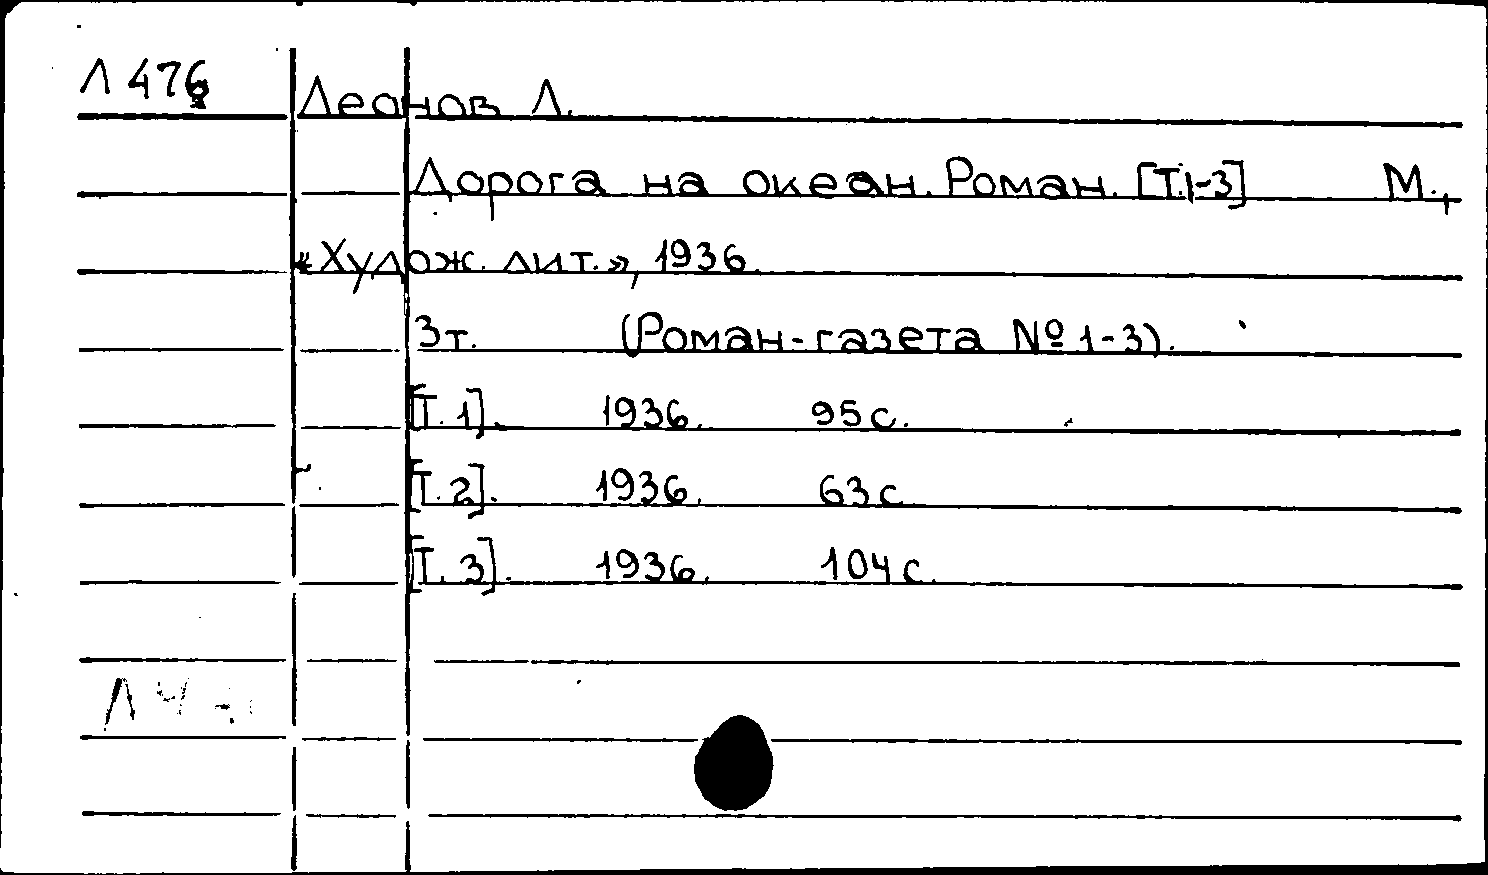 Л 476
Леонов Л.
Дорога на океан. Роман. [Т.1-3] М.,
«Худож. лит.», 1936.
3т. (Роман-газета № 1-3).
[Т. 1]. 1936. 95 с.
[Т. 2]. 1936. 63 с.
[Т. 3]. 1936. 104 с.